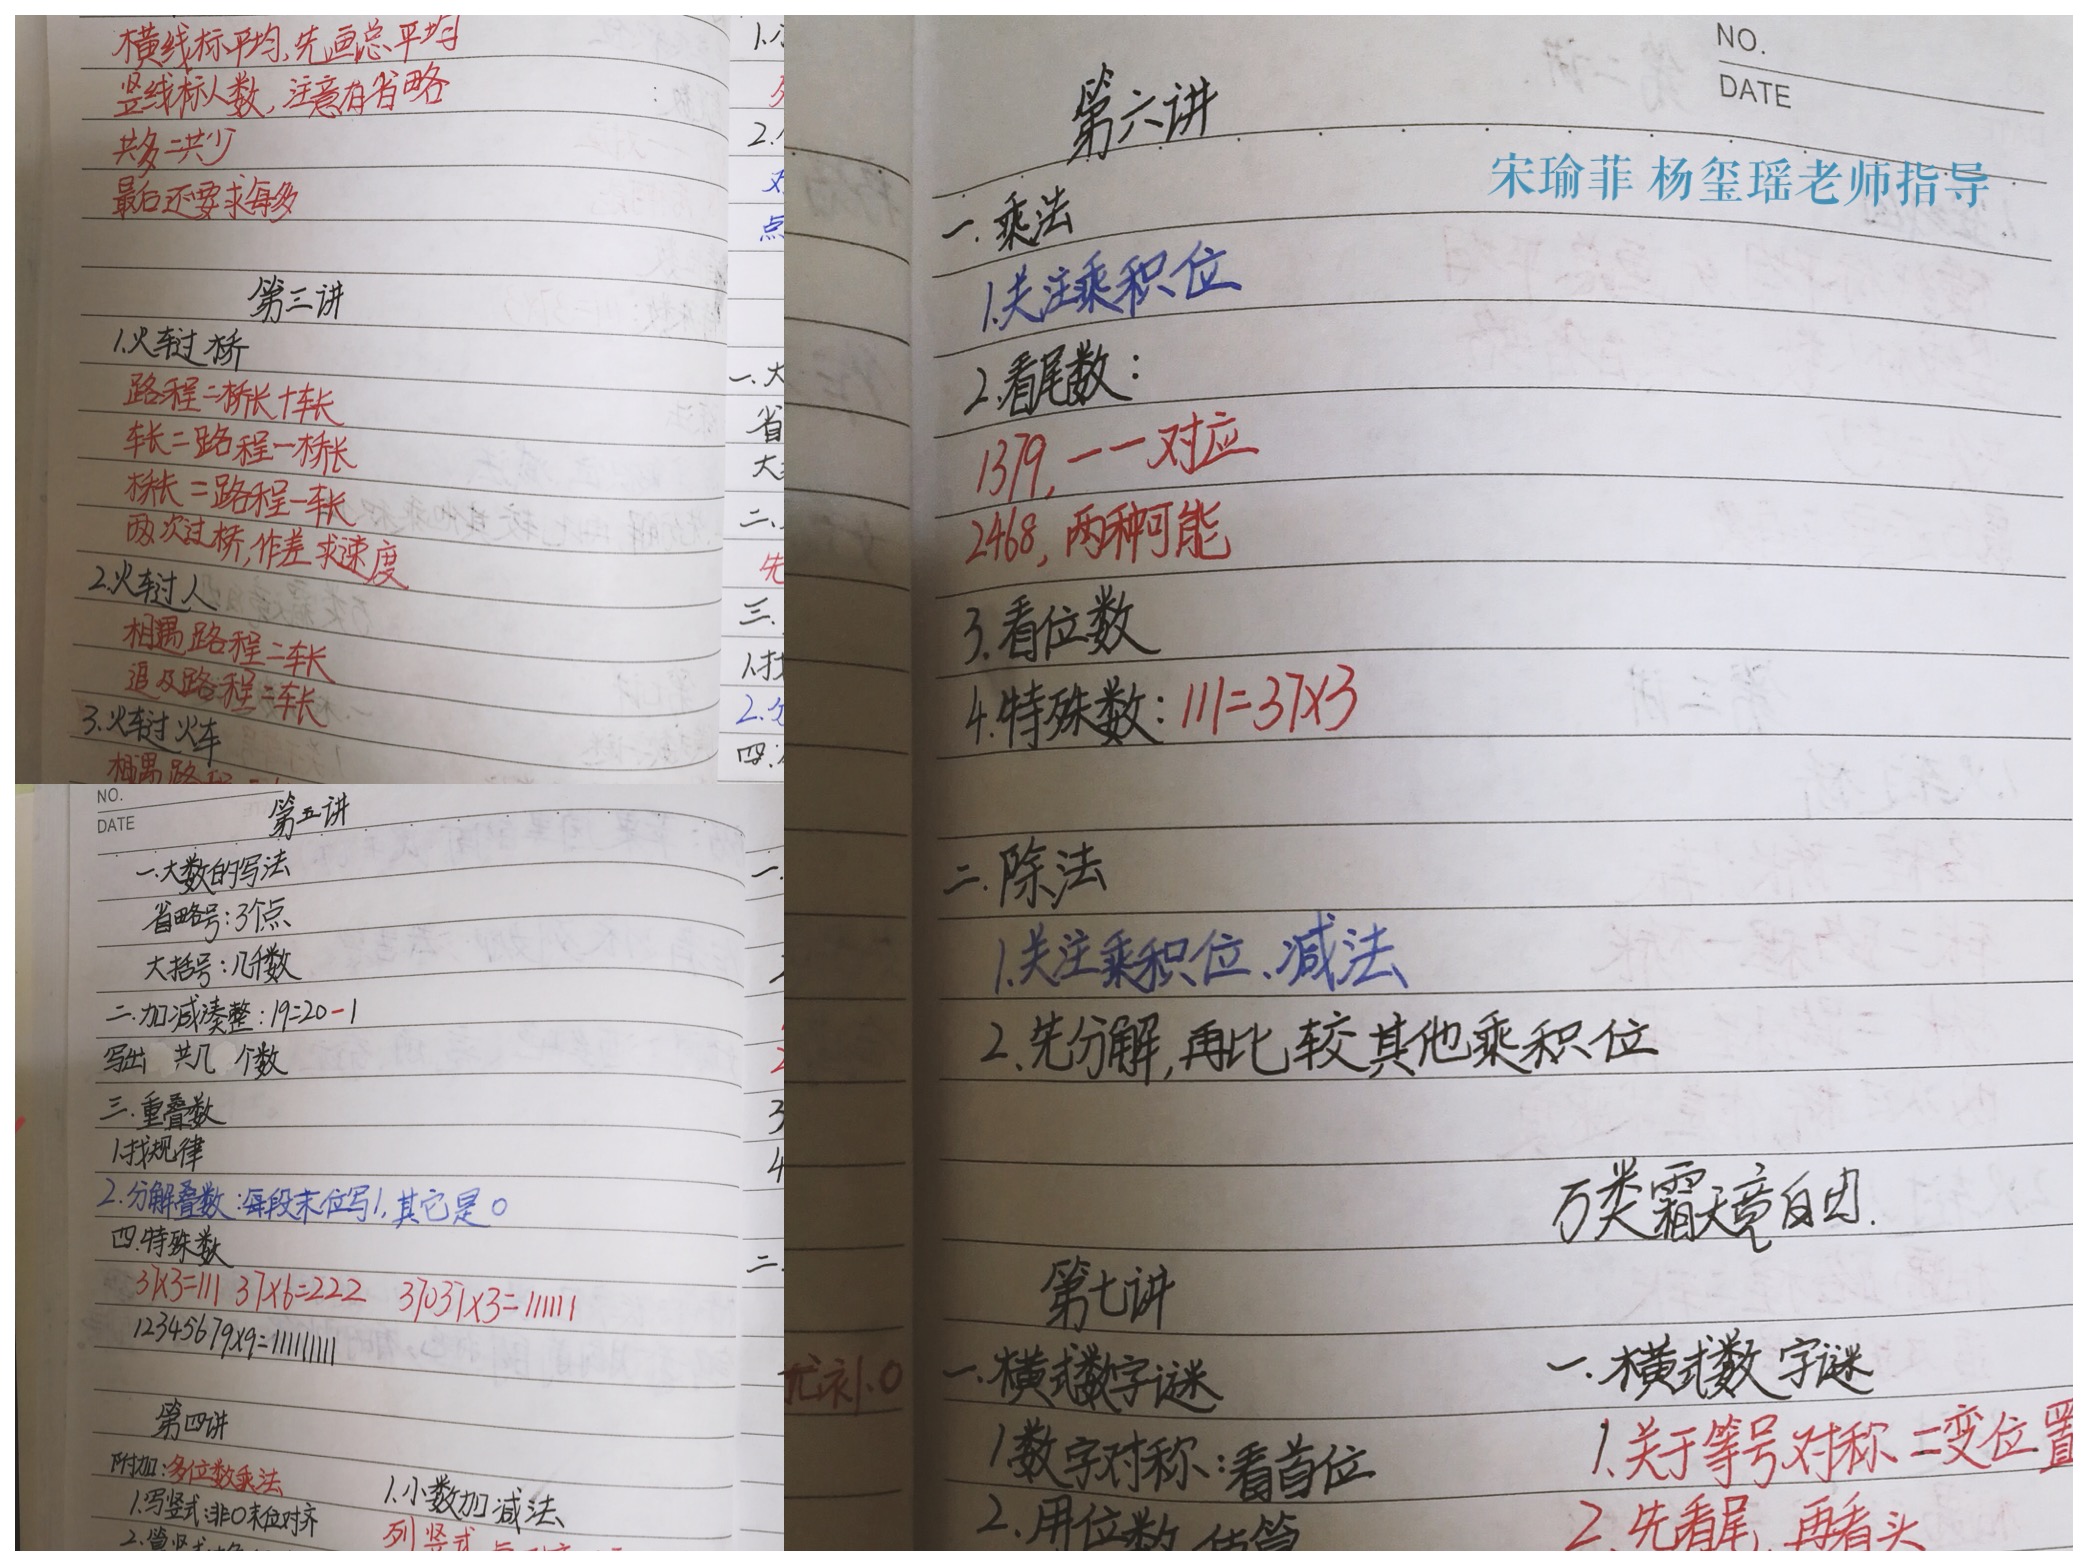 横线标平均,先画总平均
竖线标人数,注意有省略
共多=共少
最后还要求每多
第三讲
1.火车过桥
路程=桥长+车长
车长=路程-桥长
桥长=路程-车长
两次过桥,作差求速度
2.火车过人
相遇路程=车长
追及路程=车长
3.火车过火车
相遇路程
1.
2.
点
一.大
省
大
二、
先
三.
1.找
2.分
四.
NO.
DATE
第五讲
一.大数的写法
省略号:3个点
大括号:几个数
二.加减凑整:19=20-1
写出 共几 个数
三.重叠数
1.找规律
2.分解叠数:每段末位写1,其它是0
四.特殊数
37×3=111 37×6=222 37037×3=111111
12345679×9=111111111
第四讲
附加:多位数乘法
1.写竖式:非0末位对齐
1.小数加减法
列竖式
NO.
DATE
第六讲
宋瑜菲 杨玺瑶老师指导
一.乘法
1.关注乘积位
2.看尾数:
1379,一一对应
2468,两种可能
3.看位数
4.特殊数:111=37×3
二.除法
1.关注乘积位、减法
2.先分解,再比较其他乘积位
万类霜天竟自由.
第七讲
一.横式数字谜
1数字对称:看首位
2.用位数估算
一.横式数字谜
1.关于等号对称=变位置
2.先看尾,再看头